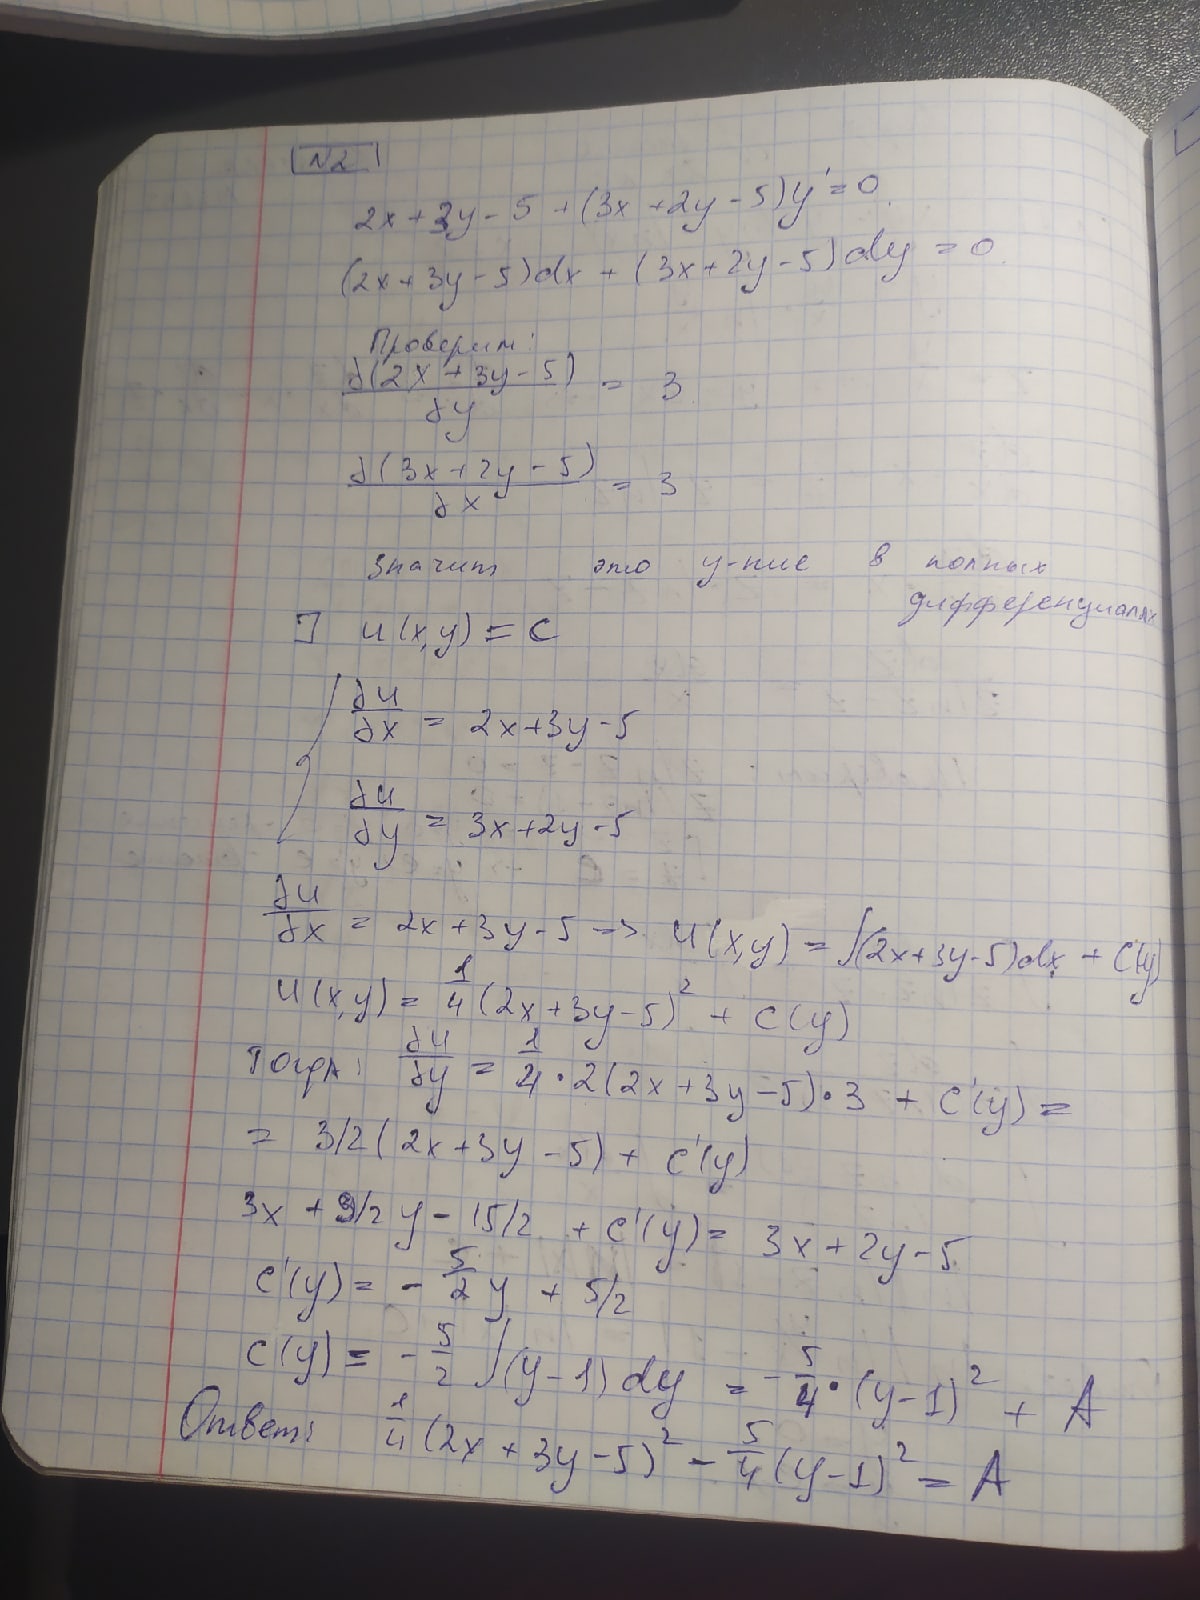 N2
2x+3y-5+(3x+2y-5)y'=0
(2x+3y-5)dx+(3x+2y-5)dy=0
Проверим:
∂(2x+3y-5)/∂y = 3
∂(3x+2y-5)/∂x = 3
Значит это у-ние в полных
дифференциалах
] u(x,y)=C
{ ∂u/∂x = 2x+3y-5
∂u/∂y = 3x+2y-5
∂u/∂x = 2x+3y-5 => u(x,y)=∫(2x+3y-5)dx + C(y)
u(x,y)= 1/4 (2x+3y-5)² + C(y)
Тогда: ∂u/∂y = 1/4·2(2x+3y-5)·3 + C'(y) =
= 3/2(2x+3y-5)+ C'(y)
3x+9/2y-15/2 + C'(y)= 3x+2y-5
C'(y)= -5/2 y + 5/2
C(y)= -5/2 ∫(y-1)dy = -5/4·(y-1)² + A
Ответ: 1/4(2x+3y-5)² - 5/4(y-1)² = A